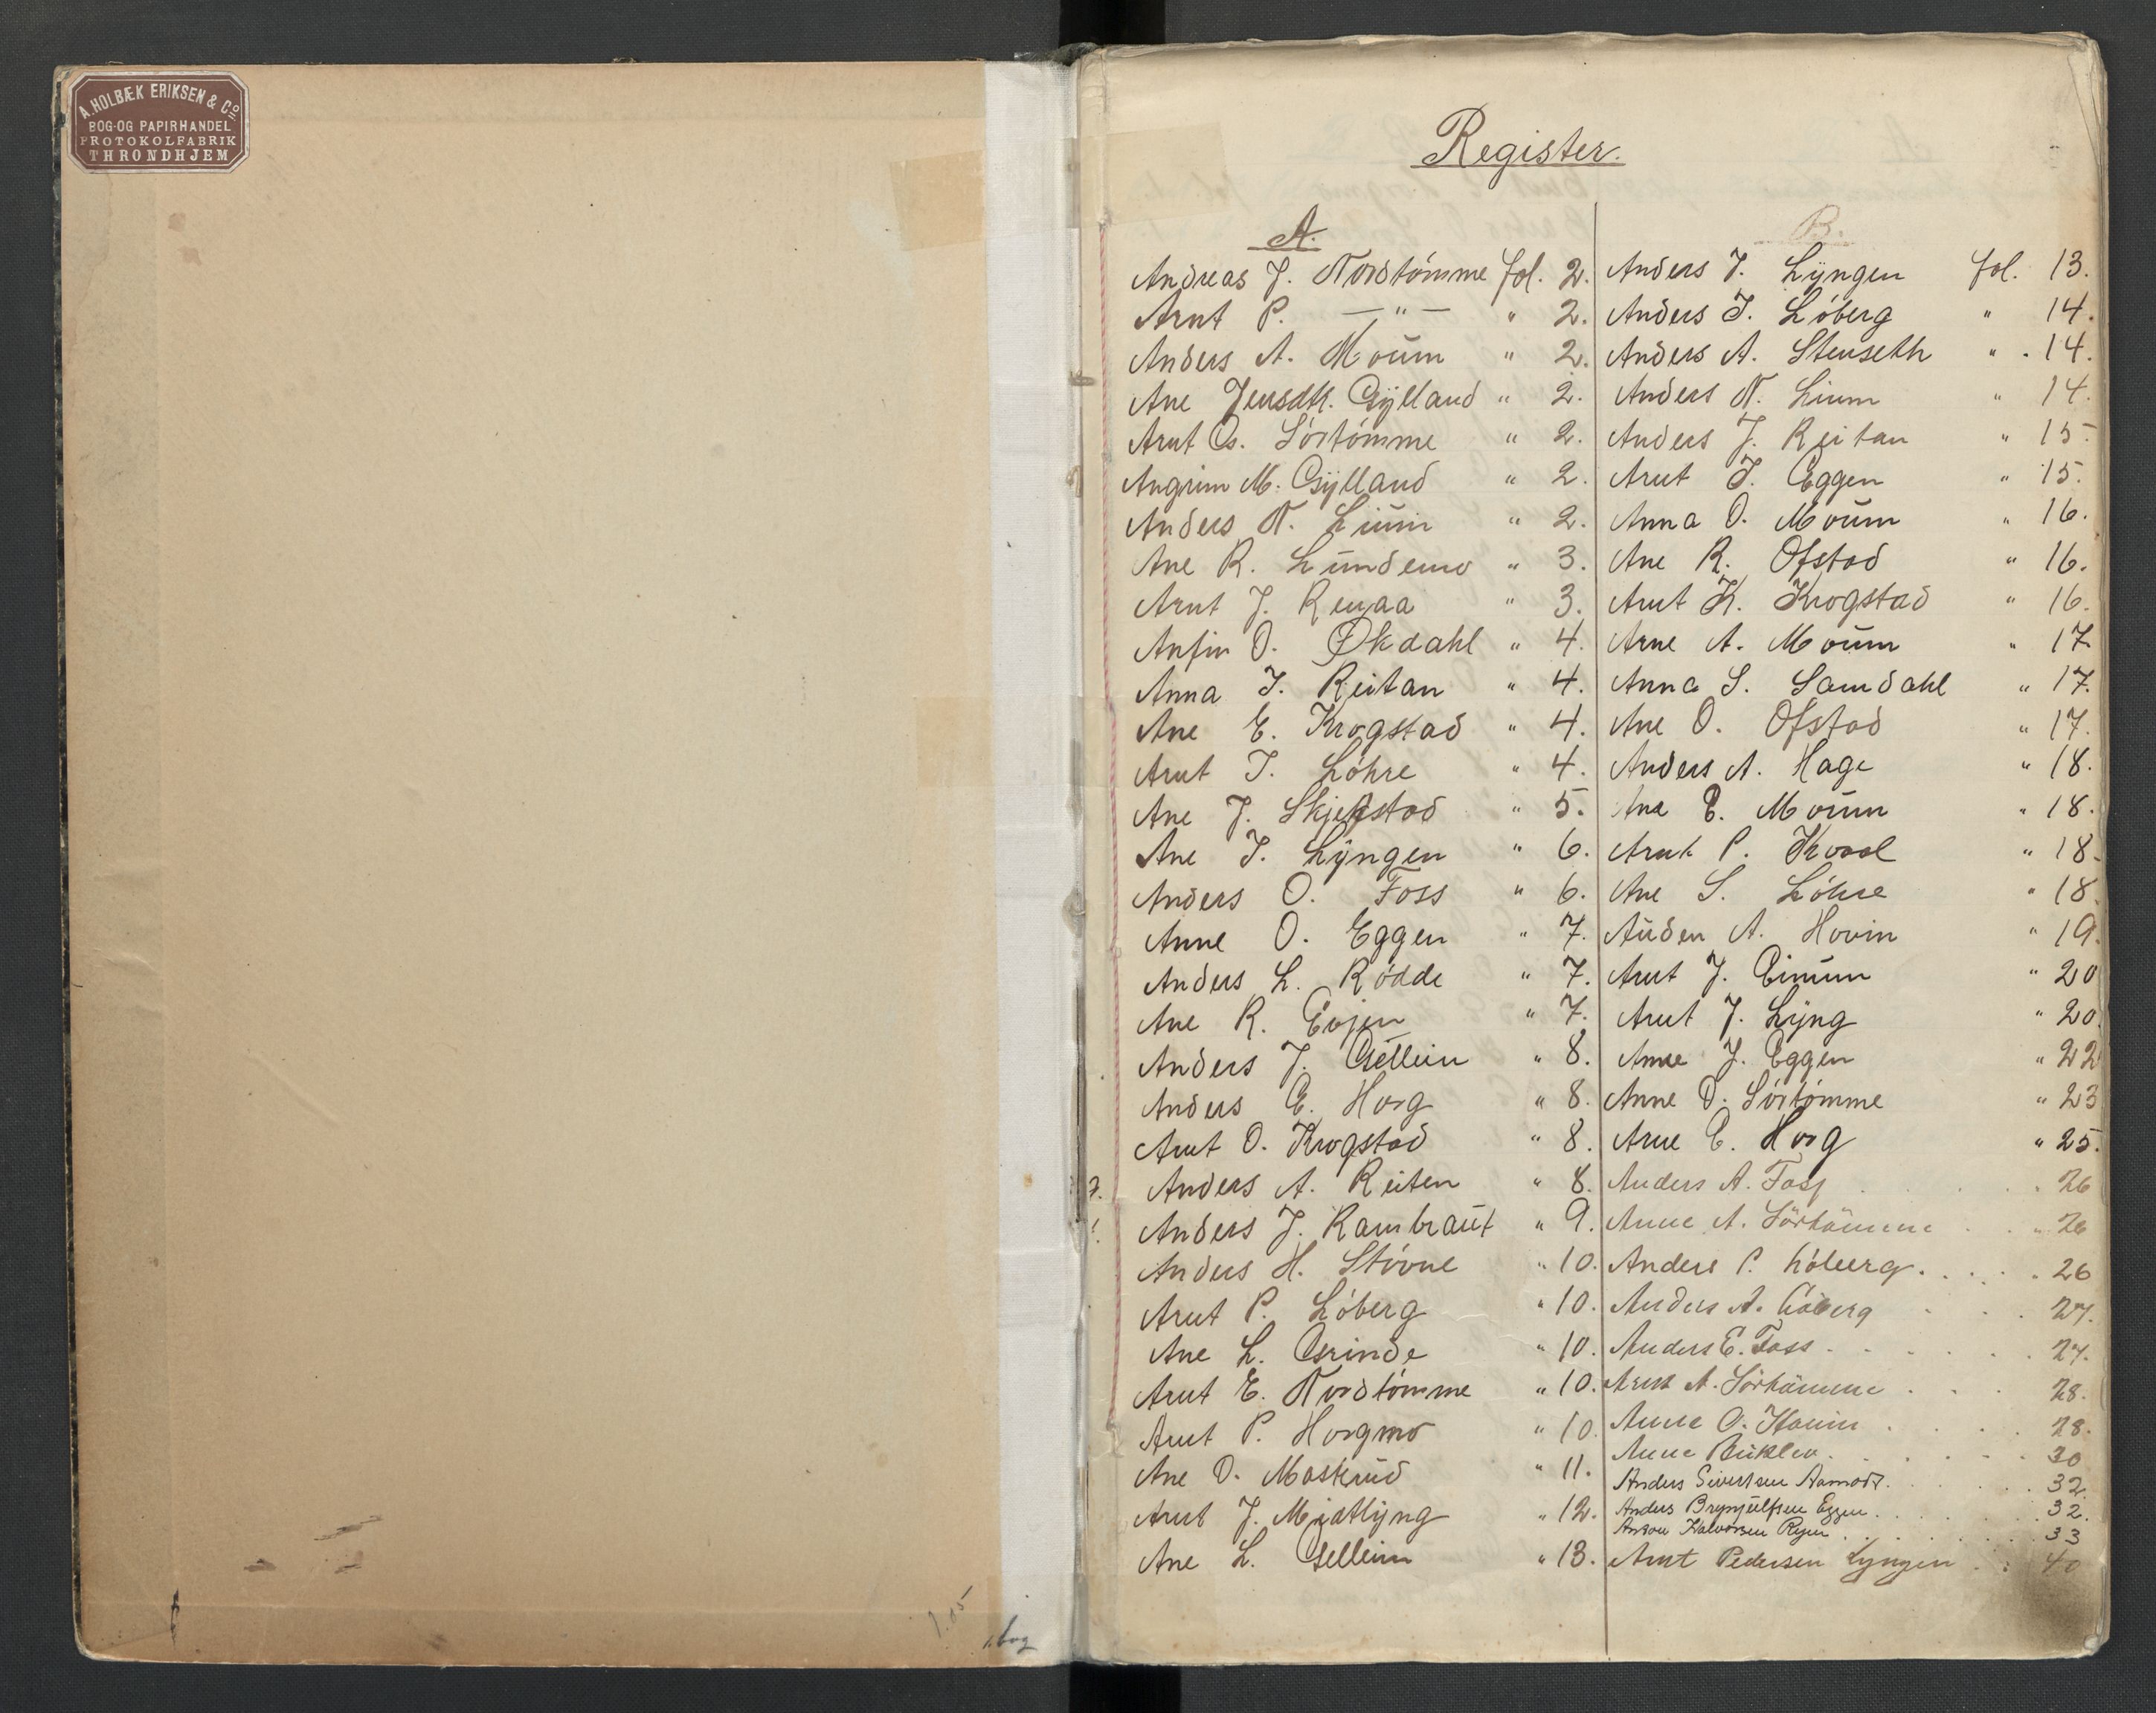 A. HOLBÆK ERIKSEN & Co
BOG-OG PAPIRHANDEL
PROTOKOLFABRIK
THRONDHJEM
1.05
Register.
A.
Andreas J. Nordtømme fol. 2.
Arnt P. —"— " 2.
Anders A. Moum " 2.
Ane Jensdtr. Gylland " 2.
Arnt Os. Sørtømme " 2.
Angrim M. Gylland " 2.
Anders N. Lium " 2.
Ane R. Lundemo " 3.
Arnt J. Renaa " 3.
Anfin O. Økdahl " 4.
Anna I. Reitan " 4.
Ane E. Krogstad " 4.
Arnt I. Løhre " 4.
Ane J. Skjerstad " 5.
Ane I. Lyngen " 6.
Anders O. Foss " 6.
Anne O. Eggen " 7.
Anders L. Rødde " 7.
Ane R. Evjen " 7.
Anders J. Gellein " 8.
Anders E. Horg " 8.
Arnt O. Krogstad " 8.
Anders A. Reiten " 8.
Anders J. Rambraut " 9.
Anders H. Støvne " 10.
Arnt P. Løberg " 10.
Ane L. Grinde " 10.
Arnt E. Nordtømme " 10.
Arnt P. Horgmo " 10.
Ane O. Masterud " 11.
Arnt J. Midtlyng " 12.
Ane L. Gellein " 13.
B.
Anders J. Lyngen fol. 13.
Anders I. Løberg " 14.
Anders A. Stenseth " 14.
Anders N. Lium " 14.
Anders J. Reitan " 15.
Arnt I. Eggen " 15.
Anna O. Moum " 16.
Ane R. Ofstad " 16.
Arnt K. Krogstad " 16.
Arne A. Moum " 17.
Anna S. Samdahl " 17.
Ane O. Ofstad " 17.
Anders A. Hage " 18.
Ane E. Moum " 18.
Arnt P. Kvaal " 18.
Ane S. Løhre " 18.
Auden A. Hovin " 19.
Arnt J. Einum " 20
Arnt J. Lyng " 20.
Anne J. Eggen " 22
Anne O. Sørtømme " 23
Arne E. Horg " 25.
Anders A. Foss . . . 26
Anne A. Sørtömme . . " 26
Anders P. Løberg. . . . . 26
Anders A. Löberg . . . 27.
Anders E. Foss . . . . . . 27.
Arnt A. Sörtömme . . . 28.
Anne O. Hovin . . . . . 28.
Anne Buklev . . . . . . 30
Anders Sivertsen Aamodt . . . . 32.
Anders Brynjulfsen Eggen . . . . 32.
Halvorsen Ryen . . . . . . 33
Arnt Pedersen Lyngen . . 40